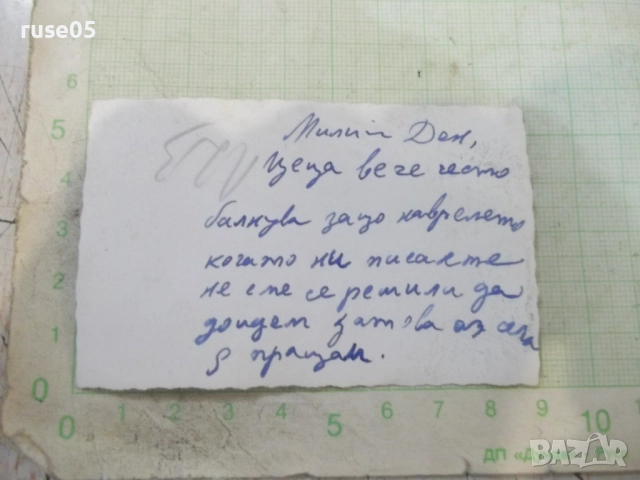 ruse05
Милий Ден,
Цеца вече често
балнува защо наврелето
когато ни писахте
не сме се ремили да
доидем затова аз сега
я пращам.
5
4
3
2
1
0
0 1 2 3 4 5 6 7 8 9 10
BAZAR